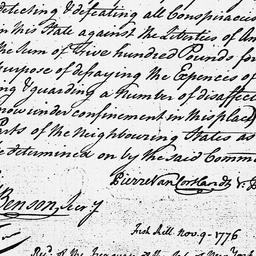 detecting & defeating all Conspiracies
in this State against the Liberties of Am
the Sum of Five hundred Pounds for
purpose of defraying the Expences of
ing & guarding a Number of disaffect
now under confinement in this place)
Parts of the Neighbouring States as
determined on by the said Commi
Pierre Van Cortlandt V. P
Benson, Secry
Fish Kill Nov. 9 - 1776
Rec.d of the Treasurer of the State of New York